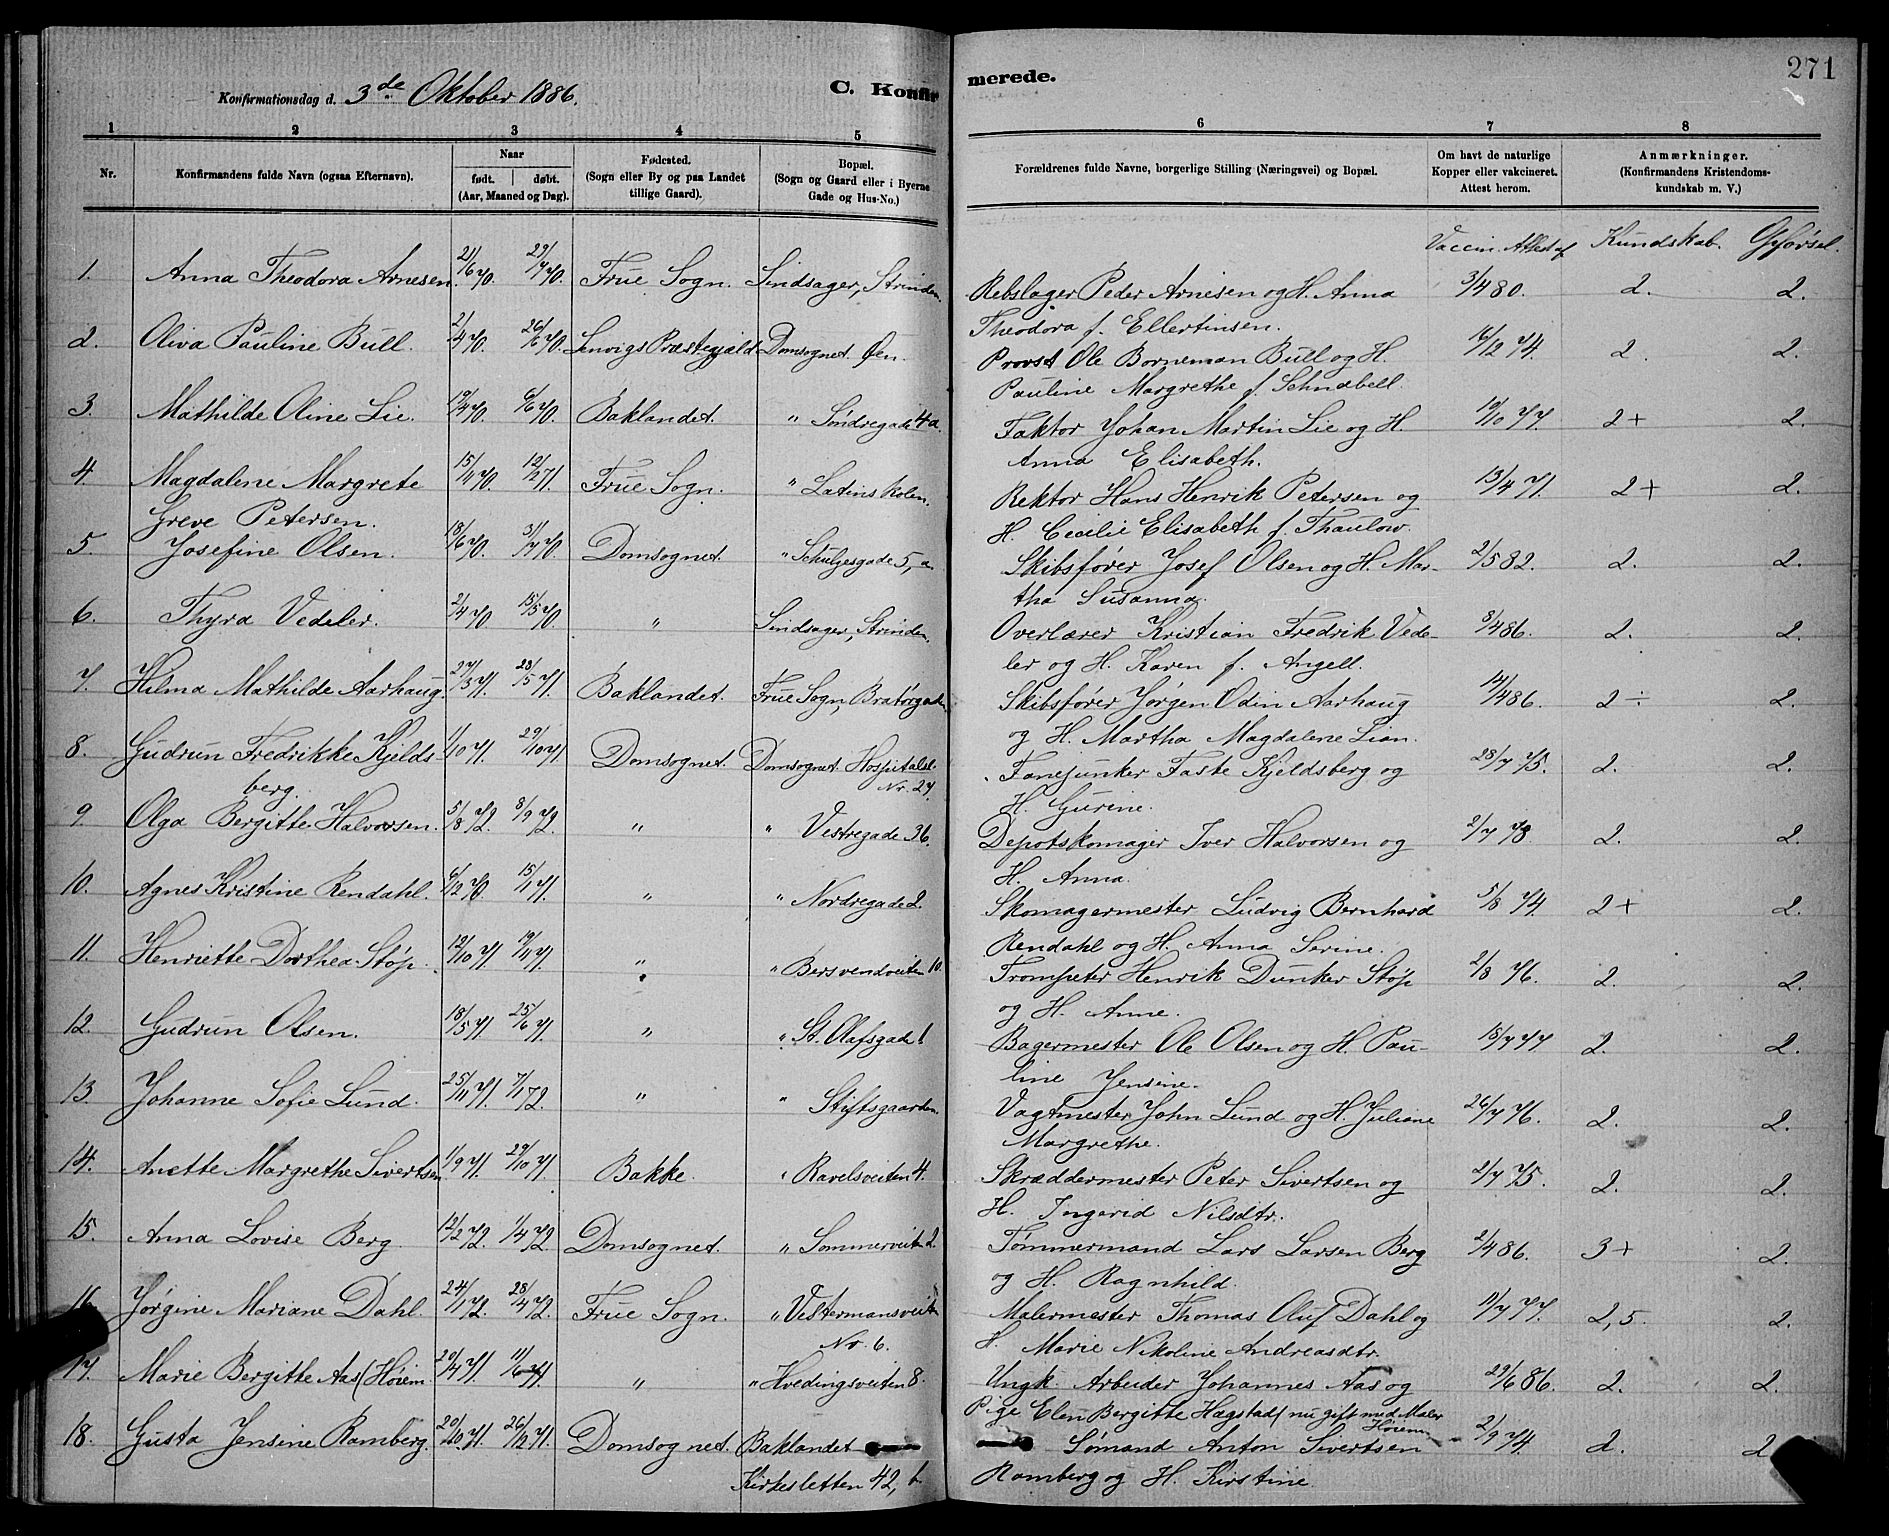 271
Konfirmationsdag d. 3de Oktober 1886.
C. Konfir merede.
1 2 3 4 5 6 7 8
Nr.
Konfirmandens fulde Navn (ogsaa Efternavn).
Naar
født. døbt.
(Aar, Maaned og Dag).
Fødested.
(Sogn eller By og paa Landet
tillige Gaard).
Bopæl.
(Sogn og Gaard eller i Byerne
Gade og Hus-No.)
Forældrenes fulde Navne, borgerlige Stilling (Næringsvei) og Bopæl.
Om havt de naturlige
Kopper eller vakcineret.
Attest herom.
Anmærkninger.
(Konfirmandens Kristendoms-
kundskab m. V.)
Vaccin. Attest af Kundskab. Opførsel.
1. Anna Theodora Arnesen 21/6 70. 29/7 70. Frue Sogn. Lindsager, Strinden. Rebslager Peder Arnesen og H. Anna 3/4 80. 2. 2.
Theodora f. Ellertinsen.
2. Oliva Pauline Bull. 2/4 70. 26/6 70. Lenvigs Præstegjæld Domsognet. Øen. Provst Ole Borneman Bull og H. 16/2 74. 2. 2.
Pauline Margrethe f. Schnabell.
3. Mathilde Oline Lie. 19/4 70. 6/6 70. Baklandet. " Søndregade 4a. Faktor Johan Martin Lie og H. 19/10 77. 2+ 2.
Anna Elisabeth.
4. Magdalene Margrete 15/11 70. 12/2 71. Frue Sogn. " Latinskolen. Rektor Hans Henrik Petersen og 13/4 71. 2+ 2.
Greve Petersen. H. Cecilie Elisabeth f. Thaulow.
5. Josefine Olsen. 18/6 70. 31/7 70. Domsognet. " Schultzesgade 5, a. Skibsfører Josef Olsen og H. Mar- 2/5 82. 2. 2.
tha Susanna.
6. Thyra Vedeler. 2/4 70 15/5 70. " Lindsager, Strinden. Overlærer Kristian Fredrik Vede- 3/4 86. 2. 2.
ler og H. Karen f. Angell.
7. Hilma Mathilde Aarhaug. 27/3 71. 28/5 71. Baklandet. Frue Sogn, Bratørgaden. Skibsfører Jørgen Odin Aarhaug 14/4 86. 2÷ 2.
og H. Martha Magdalene Lian.
8. Gudrun Fredrikke Kjelds- 1/10 71. 29/10 71. Domsognet. Domsognet. Hospitalsl. Fanejunker Faste Kjeldsberg og 28/7 75. 2. 2.
berg. Nr. 27. H. Gurine.
9. Olga Bergitte Halvorsen. 5/8 72. 8/9 72 " " Vestregade 36. Depotskomager Iver Halvorsen og 2/7 78. 2. 2.
H. Anna.
10. Agnes Kristine Rendahl. 6/12 70. 15/1 71. " " Nordregade 2. Skomagermester Ludvig Bernhard 5/8 74. 2+ 2.
Rendahl og H. Anna Serine.
11. Henriette Dorthea Støp. 12/10 71 19/11 71. " " Bersvendveiten 10. Trompeter Henrik Dunker Støp 2/8 76. 2. 2.
og H. Anne.
12. Gudrun Olsen. 18/5 71. 25/6 71. " " St. Olafsgade 1 Bagermester Ole Olsen og H. Pau- 18/7 77 2. 2.
line Jensine.
13. Johanne Sofie Lund. 25/11 71. 7/1 72. " " Stiftsgaarden. Vagtmester John Lund og H. Juliane 26/7 76. 2. 2.
Margrethe.
14. Anette Margrethe Sivertsen 1/9 71. 29/10 71. Bakke. " Ravelsveiten 4. Skræddermester Peter Sivertsen og 2/7 75. 2. 2.
H. Ingerid Nilsdtr.
15. Anna Lovise Berg. 12/2 72. 1/4 72. Domsognet. " Sommerveit 2. Tømmermand Lars Larsen Berg 2/4 86. 3+ 2.
og H. Ragnhild.
16. Jørgine Mariane Dahl. 24/1 72. 28/4 72. Frue Sogn. " Vestermansveiten Malermester Thomas Oluf Dahl og 11/7 77. 2,5. 2.
Nr. 6. H. Marie Nikoline Andreasdtr.
17. Marie Bergitte Aas (Høiem 20/4 71. 11/6 71. " " Hvedingsveiten 8. Ungk. Arbeider Johannes Aas og 29/6 86. 2. 2.
Pige Elen Bergitte Hægstad (nu gift med Maler
Høiem
18. Gusta Jensine Ramberg. 20/10 71. 26/12 71. Domsognet. Baklandet Sømand Anton Sivertsen 2/9 74. 2. 2
Kirkesletten 42, b. Ramberg og H. Kirstine.